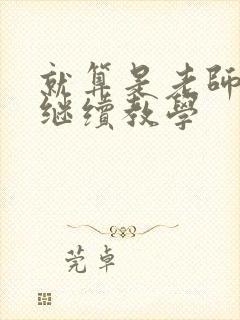 就算是老師
继續教學
莞卓